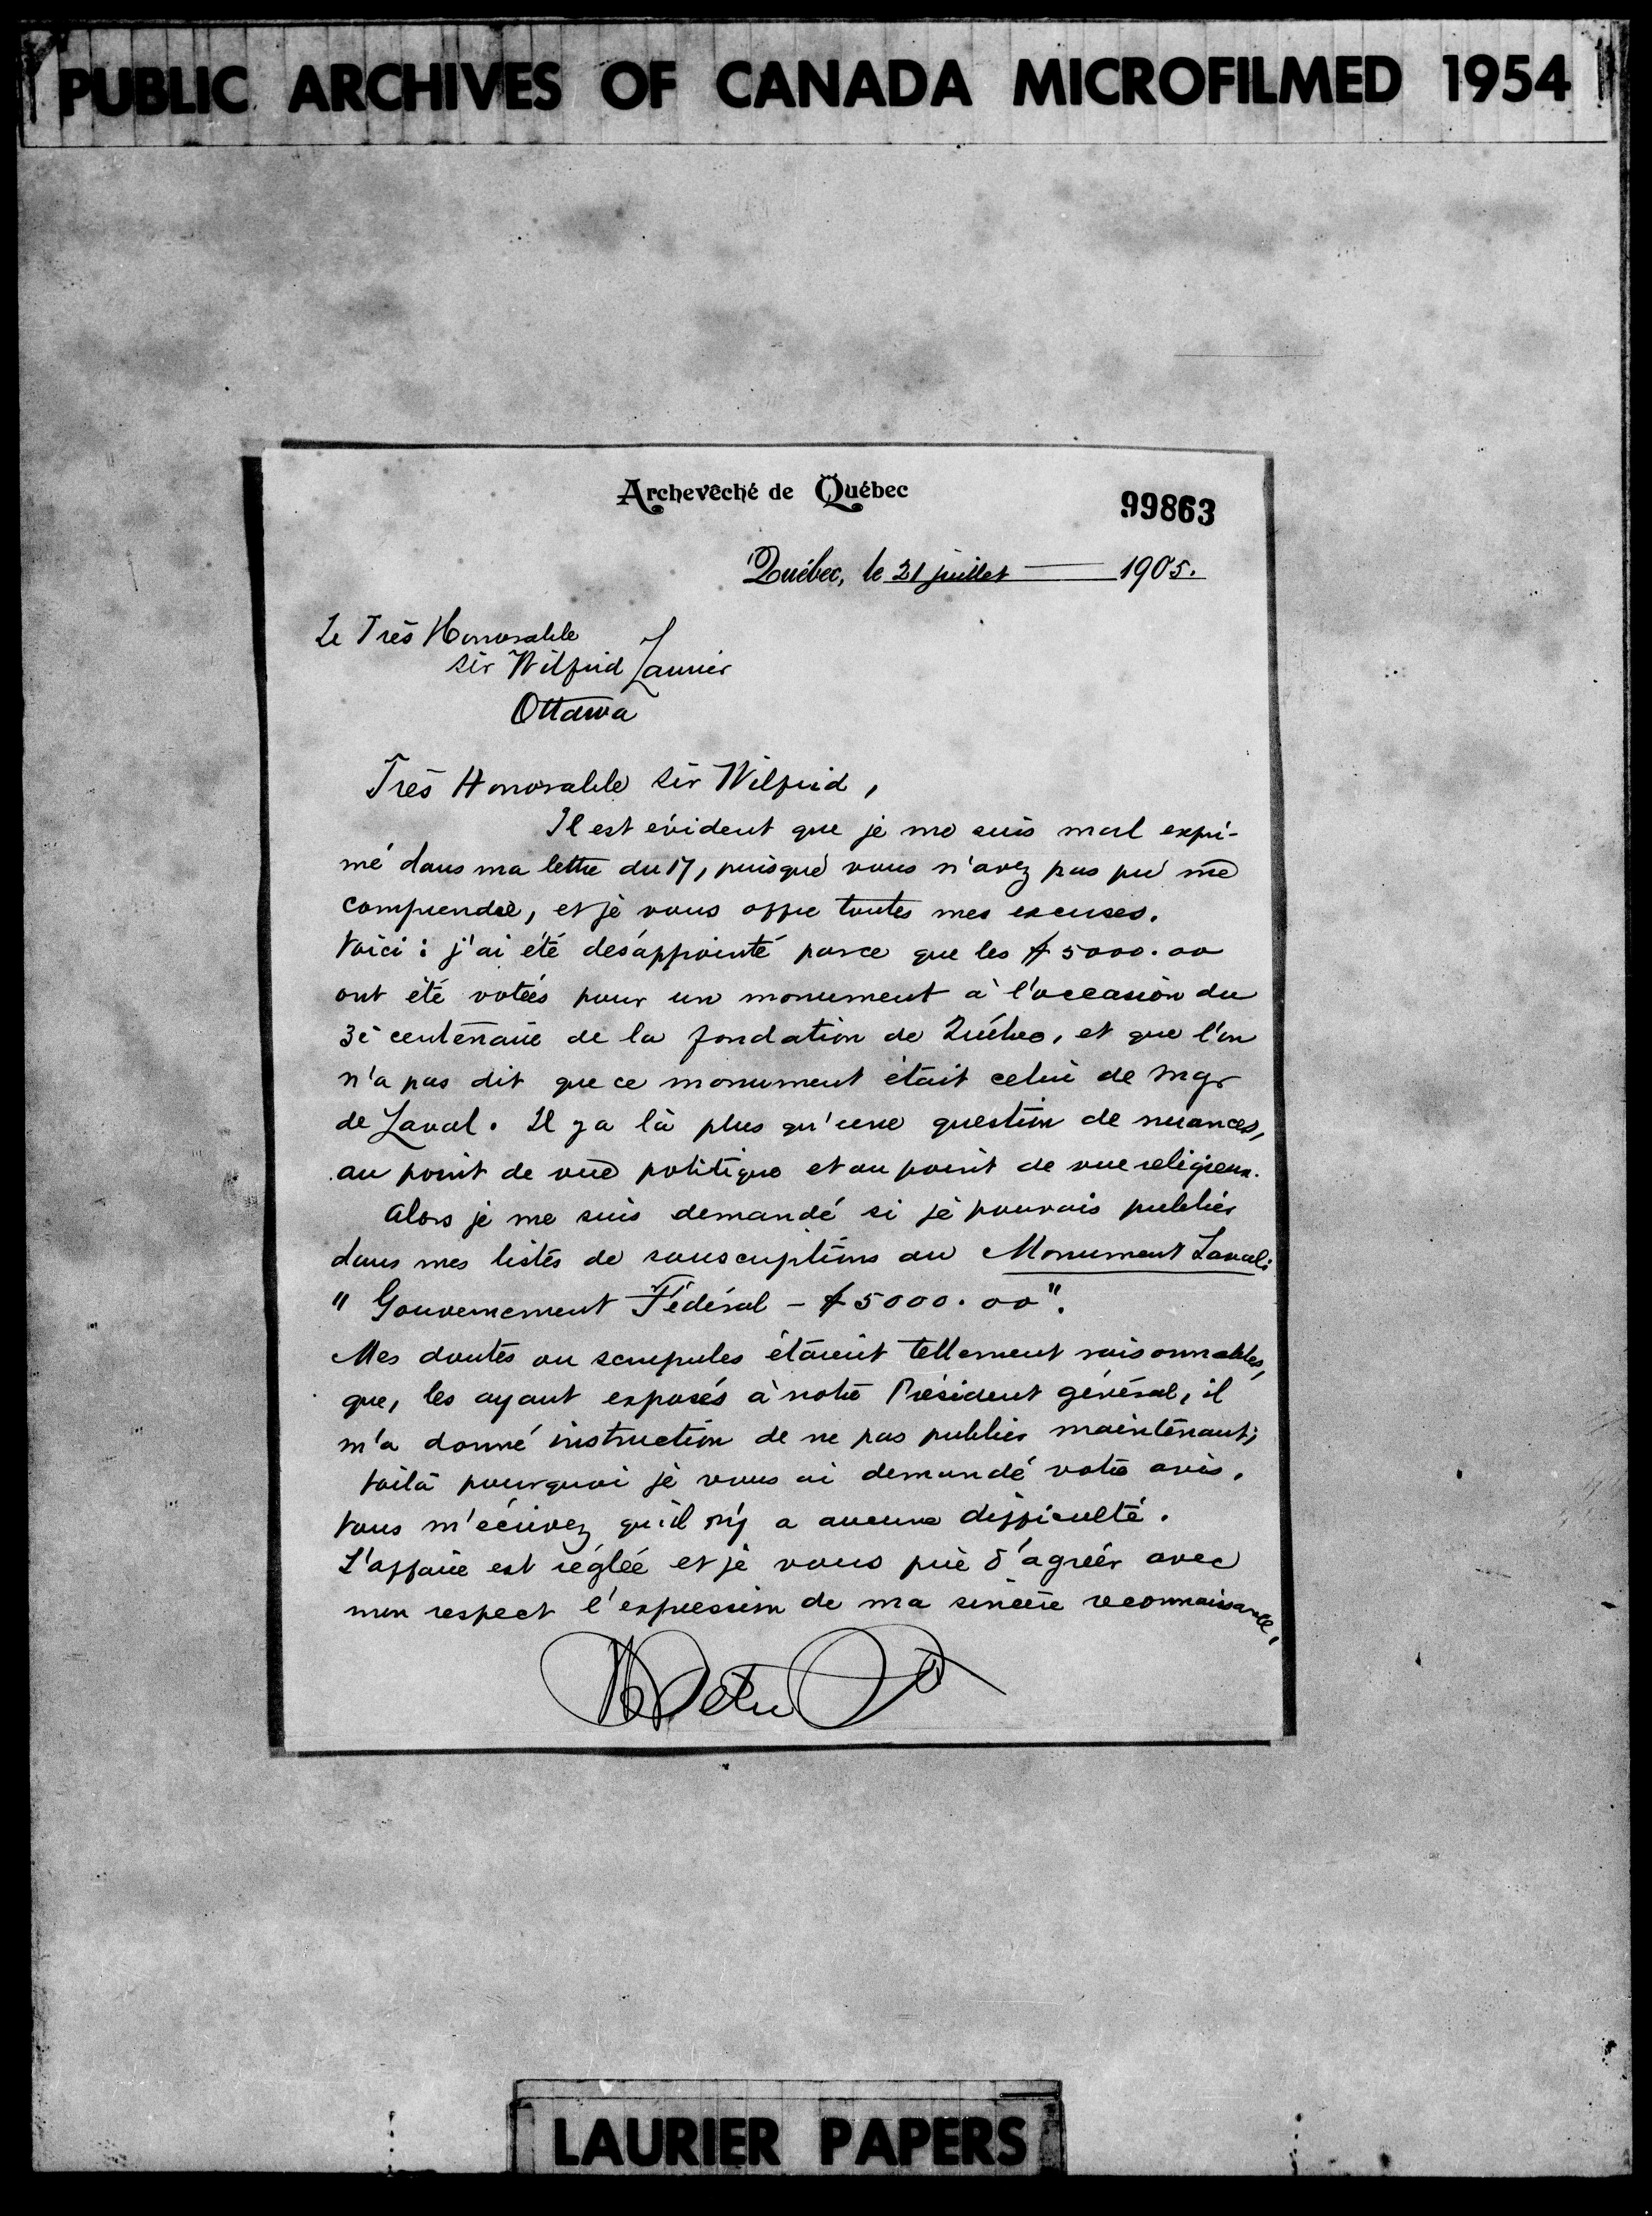 PUBLIC ARCHIVES OF CANADA MICROFILMED 1954
Archevêché de Québec
99863
Québec, le 21 juillet 1905.
Le Très Honorable
Sir Wilfrid Laurier
Ottawa
Très Honorable Sir Wilfrid,
Il est évident que je me suis mal expri-
mé dans ma lettre du 17, puisque vous n'avez pas pu me
comprendre, et je vous offre toutes mes excuses.
Voici : j'ai été désappointé parce que les $5000.00
ont été votées pour un monument à l'occasion du
3e centenaire de la fondation de Québec, et que l'on
n'a pas dit que ce monument était celui de Mgr
de Laval. Il y a là plus qu'une question de nuances,
au point de vue politique et au point de vue religieux.
Alors je me suis demandé si je pouvais publier
dans mes listes de souscriptions au Monument Laval:
" Gouvernement Fédéral - $5000.00".
Mes doutes ou scrupules étaient tellement raisonnables,
que, les ayant exposés à notre Président général, il
m'a donné instruction de ne pas publier maintenant;
voilà pourquoi je vous ai demandé votre avis.
Vous m'écrivez qu'il n'y a aucune difficulté.
L'affaire est réglée et je vous prie d'agréer avec
mon respect l'expression de ma sincère reconnaissance,
LAURIER PAPERS